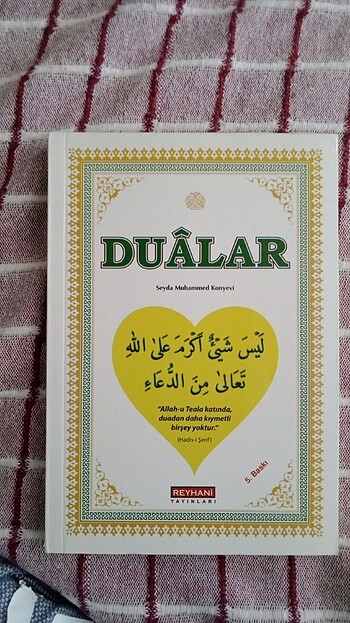 DUÂLAR
Seyda Muhammed Konyevi
لَيْسَ شَيْئٌ اَكْرَمَ عَلَى اللّٰهِ
تَعَالٰى مِنَ الدُّعَاءِ
“Allah-u Teala katında,
duadan daha kıymetli
birşey yoktur.”
(Hadis-i Şerif)
5. Baskı
REYHANİ
YAYINLARI